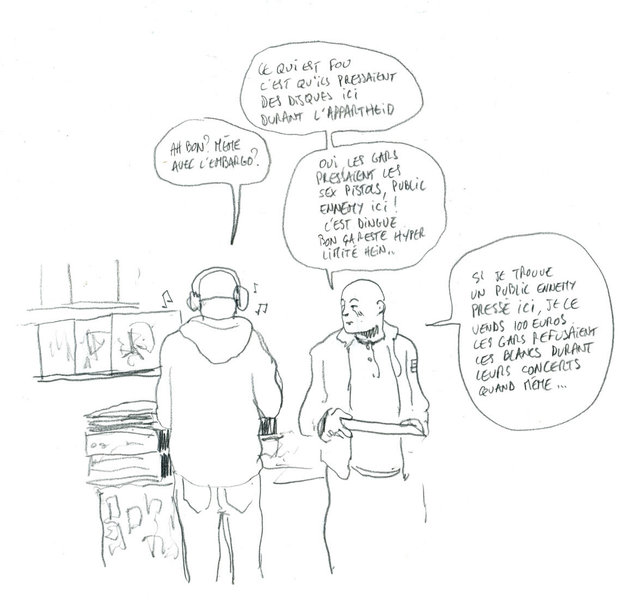 CE QUI EST FOU
C'EST QU'ILS PRESSAIENT
DES DISQUES ICI
DURANT L'APPARTHEID
AH BON? MÊME
AVEC L'EMBARGO?
OUI, LES GARS
PRESSAIENT LES
SEX PISTOLS, PUBLIC
ENNEMY ICI !
C'EST DINGUE
BON ÇA RESTE HYPER
LIMITÉ HEIN..
SI JE TROUVE
UN PUBLIC ENNEMY
PRESSÉ ICI, JE LE
VENDS 100 EUROS.
LES GARS REFUSAIENT
LES BLANCS DURANT
LEURS CONCERTS
QUAND MÊME...